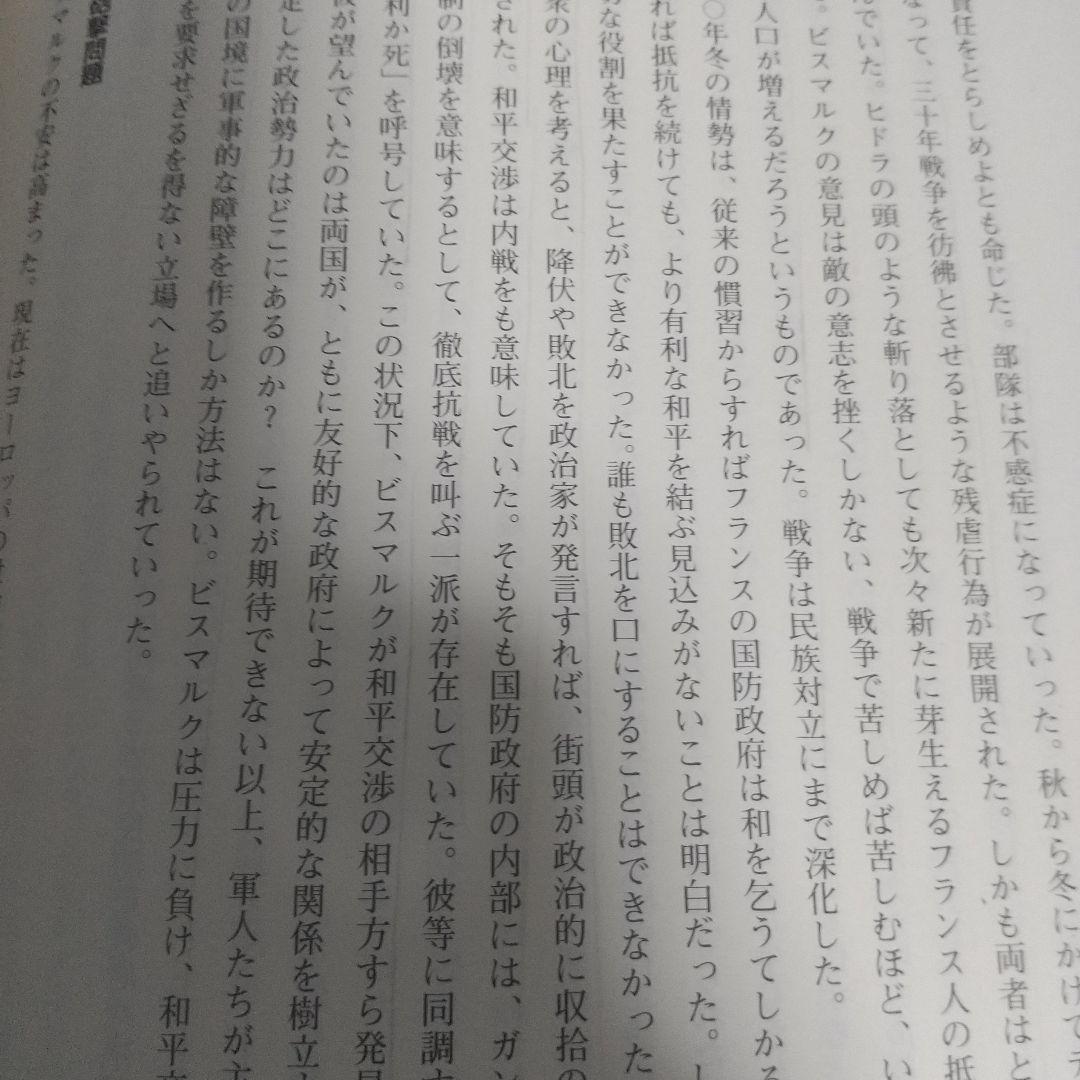 責任をとらしめよとも命じた。部隊は不感症になっていった。秋から冬にかけて
なって、三十年戦争を彷彿とさせるような残虐行為が展開された。しかも両者はと
でいた。ヒドラの頭のような斬り落としても次々新たに芽生えるフランス人の抵
。ビスマルクの意見は敵の意志を挫くしかない、戦争で苦しめば苦しむほど、い
人口が増えるだろうというものであった。戦争は民族対立にまで深化した。
〇年冬の情勢は、従来の慣習からすればフランスの国防政府は和を乞うてしかる
れば抵抗を続けても、より有利な和平を結ぶ見込みがないことは明白だった。し
な役割を果たすことができなかった。誰も敗北を口にすることはできなかった
衆の心理を考えると、降伏や敗北を政治家が発言すれば、街頭が政治的に収拾の
された。和平交渉は内戦をも意味していた。そもそも国防政府の内部には、ガン
制の倒壊を意味するとして、徹底抗戦を叫ぶ一派が存在していた。彼等に同調す
利か死」を呼号していた。この状況下、ビスマルクが和平交渉の相手方すら発見
が望んでいたのは両国が、ともに友好的な政府によって安定的な関係を樹立
定した政治勢力はどこにあるのか？　これが期待できない以上、軍人たちが主
の国境に軍事的な障壁を作るしか方法はない。ビスマルクは圧力に負け、和平交
を要求せざるを得ない立場へと追いやられていった。
撃問題
マルクの不安は高まった。現在はヨーロッパの